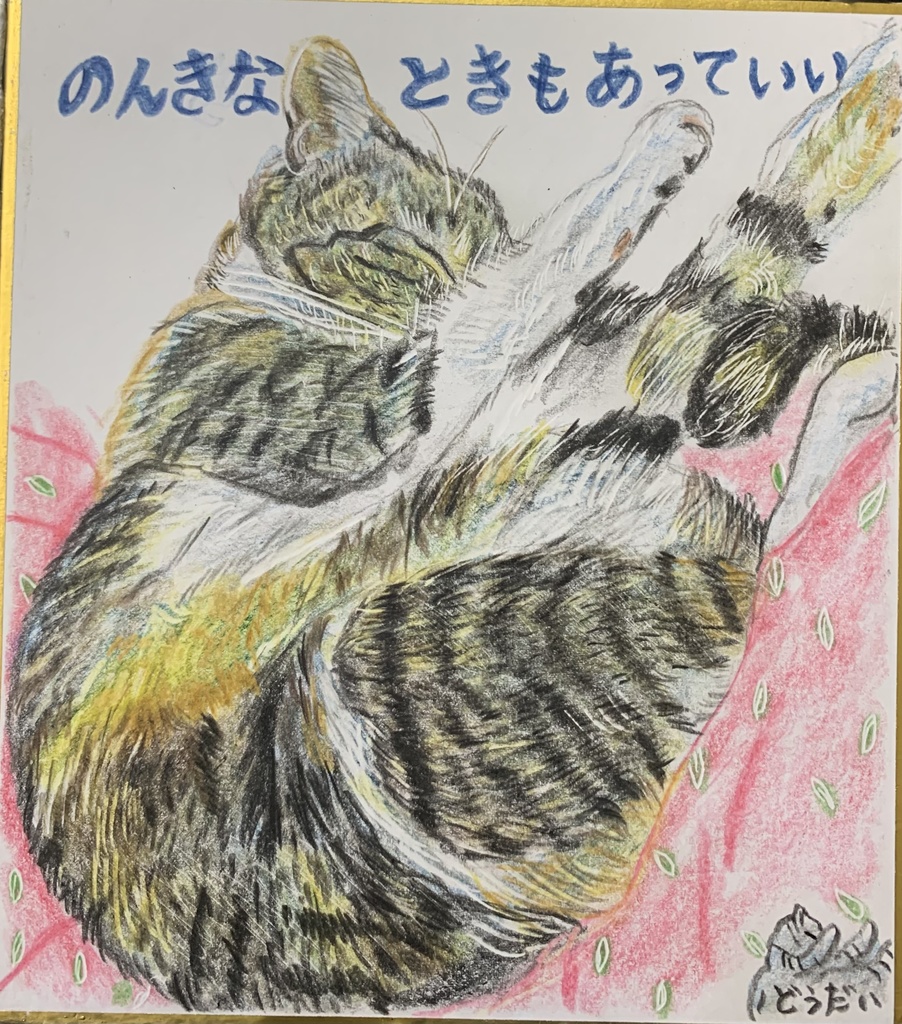 のんきな ときもあっていい
どうだい